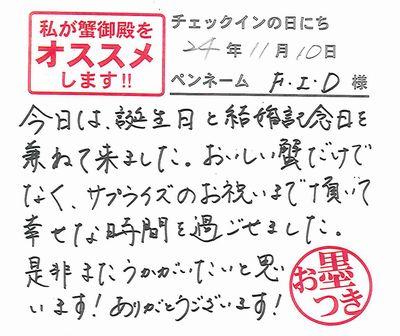 私が蟹御殿を
オススメ
します!!
チェックインの日にち
24年11月10日
ペンネーム F.I.D 様
今日は、誕生日と結婚記念日を
兼ねて来ました。おいしい蟹だけで
なく、サプライズのお祝いまで頂いて
幸せな時間を過ごせました。
是非またうかがいたいと思
います!ありがとうございます!
お墨つき